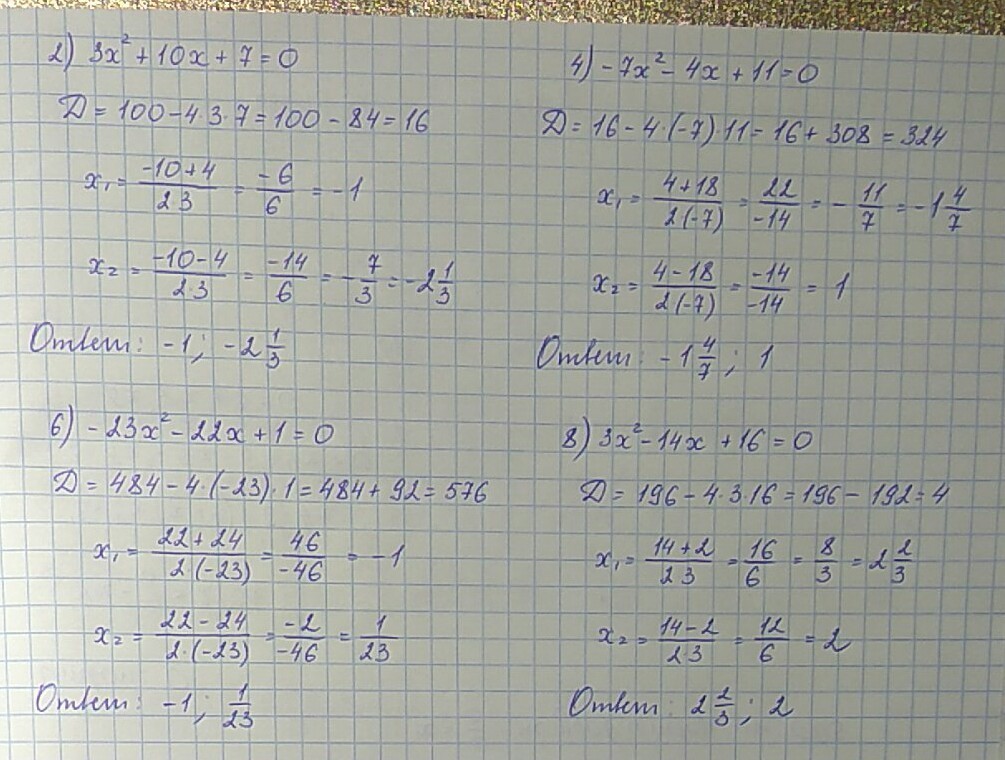 2) 3x² + 10x + 7 = 0
D = 100 - 4·3·7 = 100 - 84 = 16
x₁ = (-10+4)/(2 3) = -6/6 = -1
x₂ = (-10-4)/(2 3) = -14/6 = -7/3 = -2 1/3
Ответ: -1; -2 1/3
4) -7x² - 4x + 11 = 0
D = 16 - 4·(-7)·11 = 16 + 308 = 324
x₁ = (4+18)/(2(-7)) = 22/-14 = -11/7 = -1 4/7
x₂ = (4-18)/(2(-7)) = -14/-14 = 1
Ответ: -1 4/7; 1
6) -23x² - 22x + 1 = 0
D = 484 - 4·(-23)·1 = 484 + 92 = 576
x₁ = (22+24)/(2(-23)) = 46/-46 = -1
x₂ = (22-24)/(2·(-23)) = -2/-46 = 1/23
Ответ: -1; 1/23
8) 3x² - 14x + 16 = 0
D = 196 - 4·3·16 = 196 - 192 = 4
x₁ = (14+2)/(2 3) = 16/6 = 8/3 = 2 2/3
x₂ = (14-2)/(2 3) = 12/6 = 2
Ответ: 2 2/3; 2